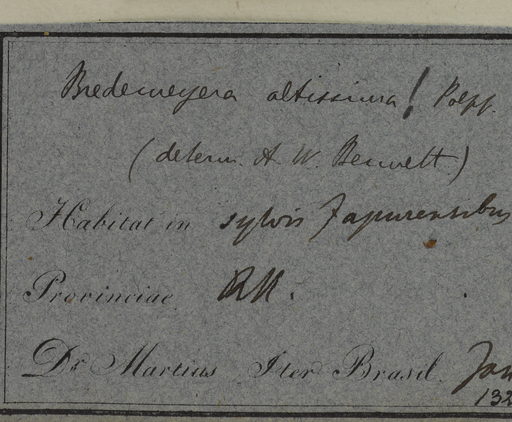 Bredemeyera altissima! Poepp.
(determ. A. W. Bennett)
Habitat in sylvis Japurensibus
Provinciae
Dr Martius Iter Brasil. Jan
132